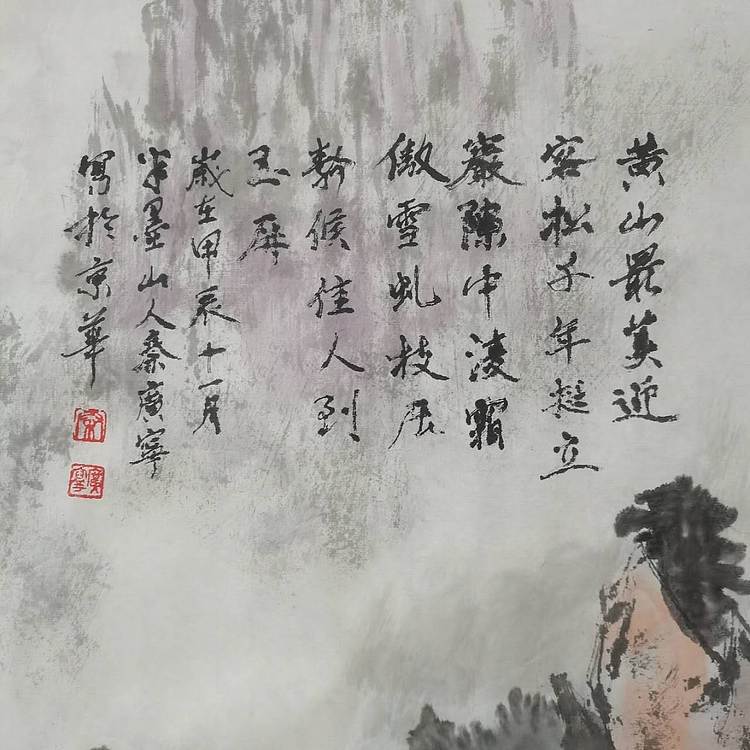 黄山最美迎
客松千年挺立
巖隙中凌霜
傲雪虬枝展
靜候佳人到
玉屏
歲在甲辰十一月
半墨山人秦廣寧
寫於京華
秦
廣寧